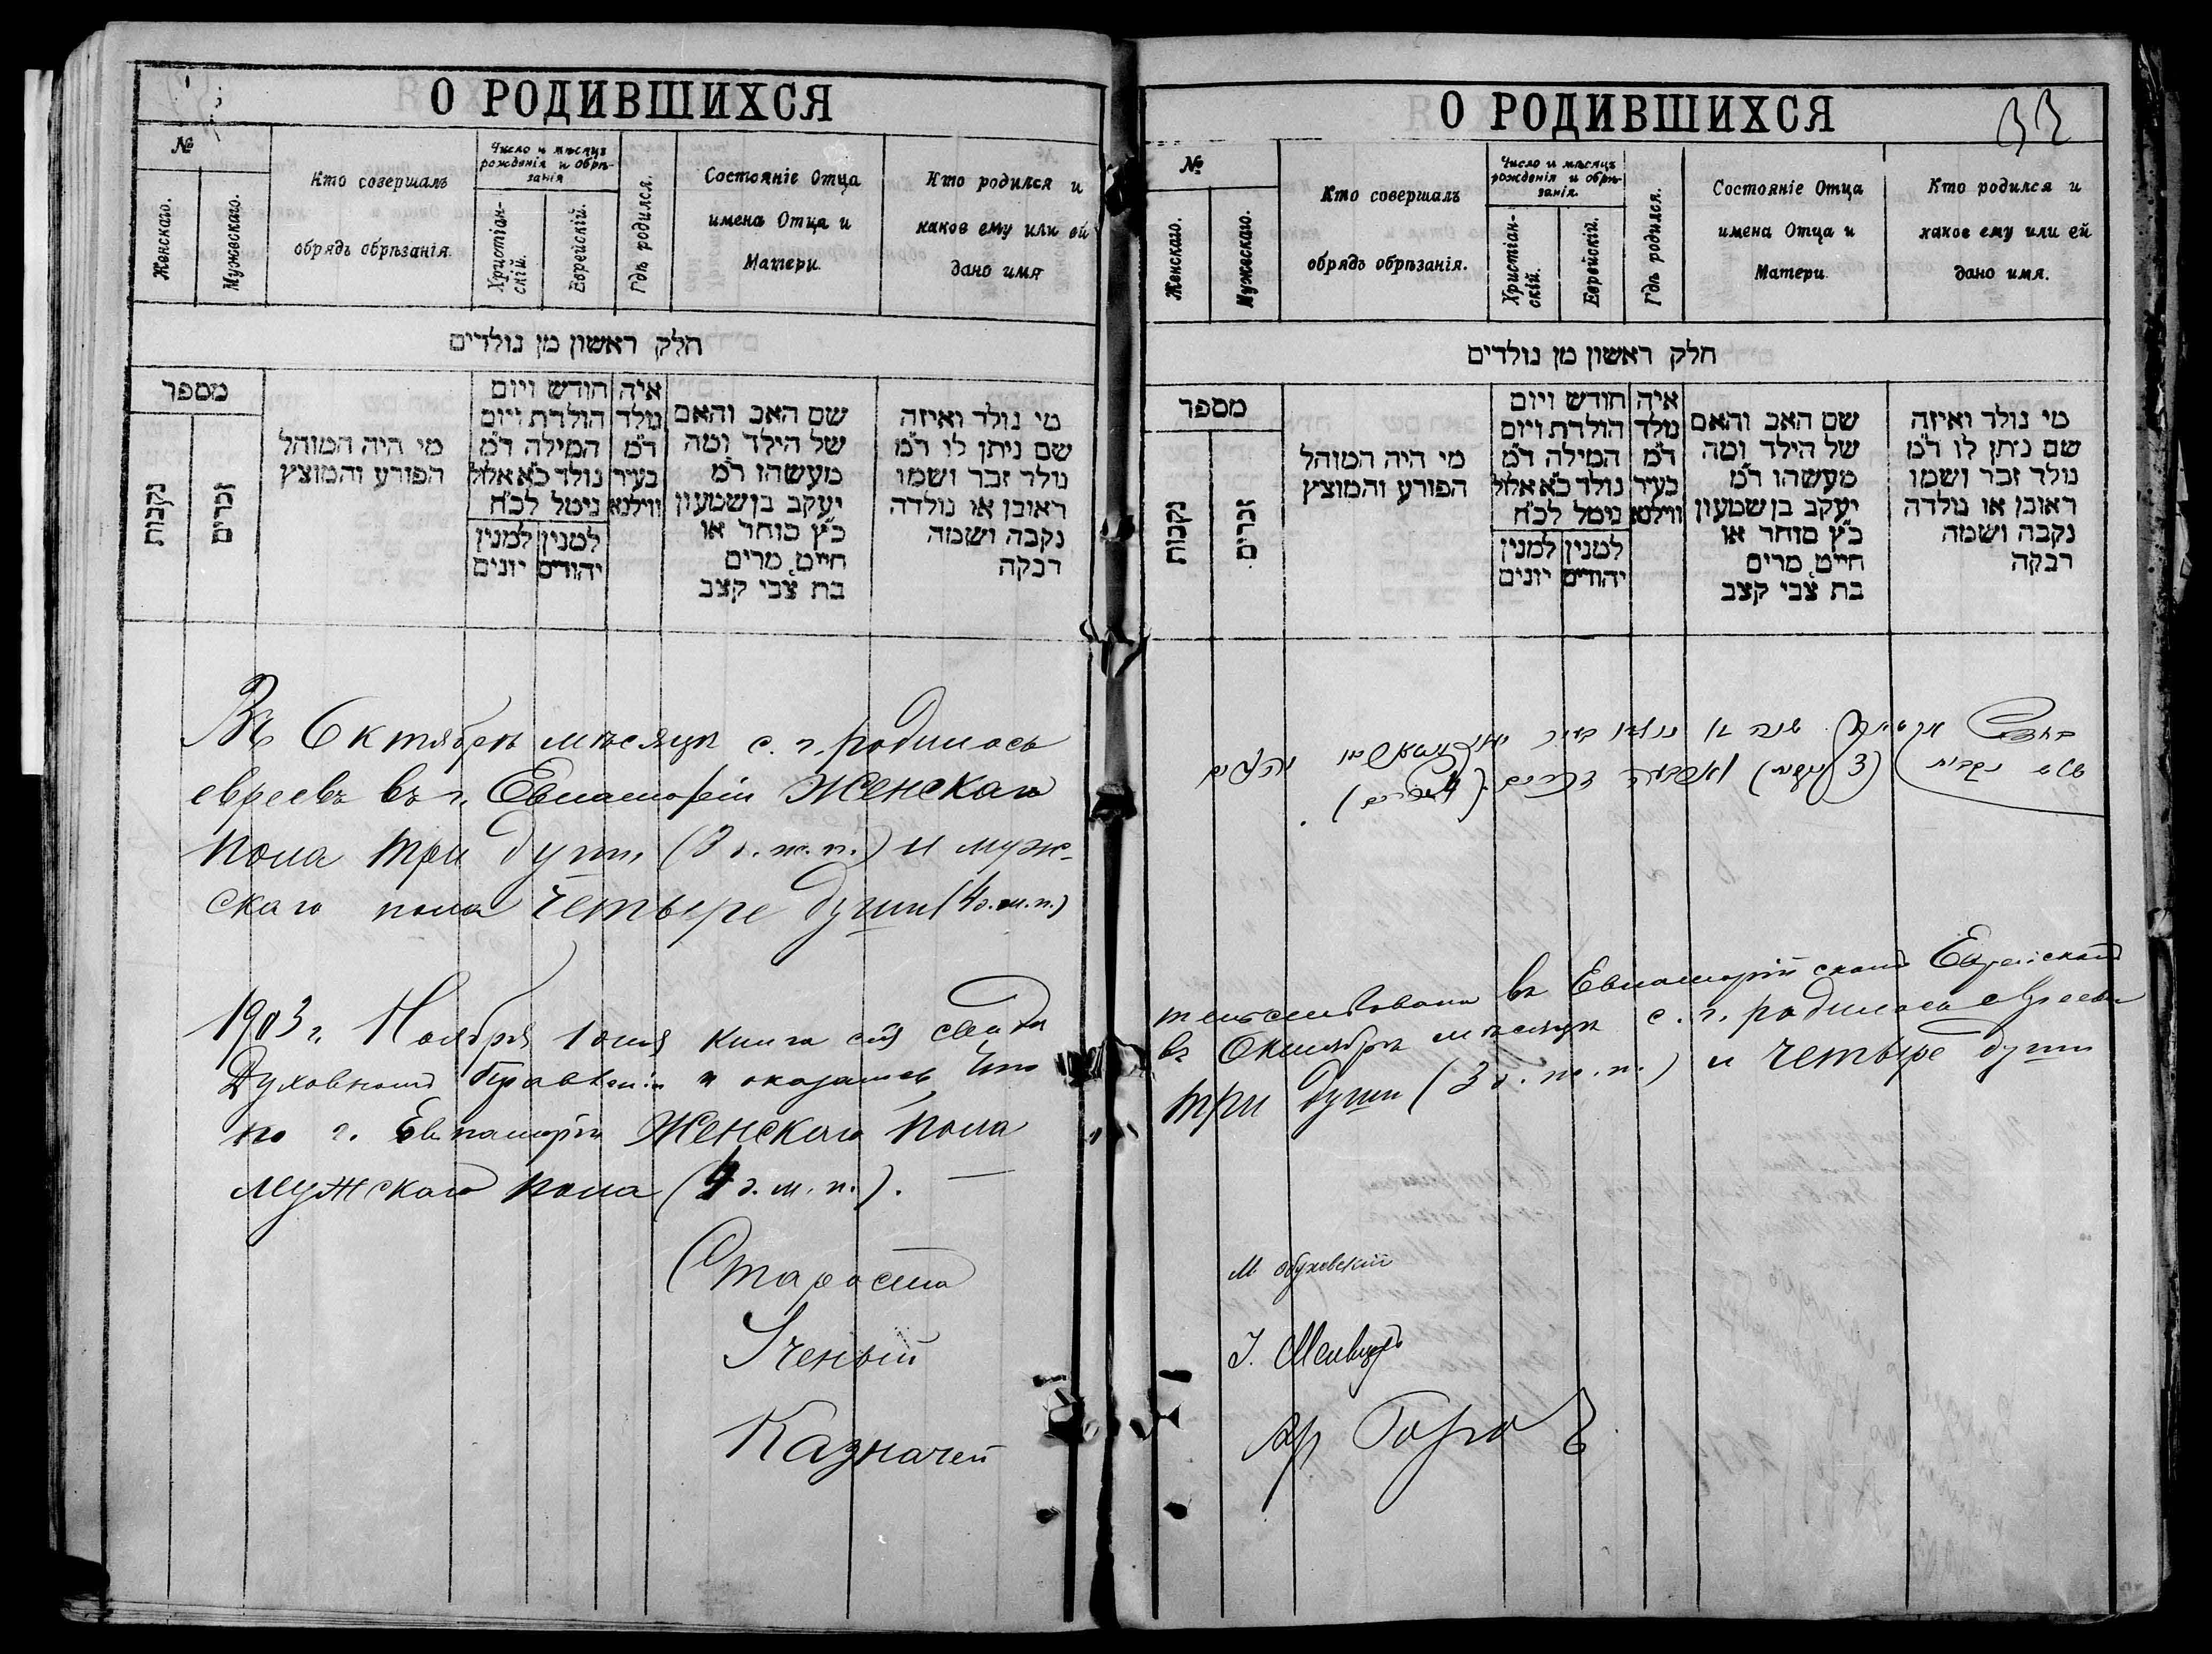 О РОДИВШИХСЯ
№
Женскаго.
Мужескаго.
Кто совершалъ
обрядъ обрѣзанія.
Число и мѣсяцъ
рожденія и обрѣ-
занія
Христіан-
скій.
Еврейскій.
Гдѣ родился.
Состояніе Отца
имена Отца и
Матери.
Кто родился и
какое ему или ей
дано имя
חלק ראשון מן נולדים
מספר
נקבות
זכרים
מי היה המוהל
הפורע והמוצץ
חודש ויום
הולדת ויום
המילה ד״מ
נולד כ״א אלול
נימל לכ״ח
למנין למנין
יהודים יונים
איה
נולד
ד״מ
בעיר
ווילנא
שם האב והאם
של הילד ומה
מעשהו ד״מ
יעקב בן שמעון
כ״ץ סוחר או
חייט, מרים
בת צבי קצב
מי נולד ואיזה
שם ניתן לו ד״מ
נולד זכר ושמו
ראובן או נולדה
נקבה ושמה
רבקה
Въ Октябрѣ мѣсяцѣ с. г. родилось
евреевъ въ г. Евпаторіи Женскаго
пола три души (3 д. ж. п.) и муж-
скаго пола четыре души (4 д. м. п.)
1903 г. Ноября 1 дня книга сія свидѣ
Духовномъ Правленіи и оказалось, что
по г. Евпаторіи Женскаго пола
мужскаго пола (4 д. м. п.). —
Староста
Ученый
Казначей
О РОДИВШИХСЯ
33
№
Женскаго.
Мужескаго.
Кто совершалъ
обрядъ обрѣзанія.
Число и мѣсяцъ
рожденія и обрѣ-
занія.
Христіан-
скій.
Еврейскій.
Гдѣ родился.
Состояніе Отца
имена Отца и
Матери.
Кто родился и
какое ему или ей
дано имя.
חלק ראשון מן נולדים
מספר
נקבות
זכרים
מי היה המוהל
הפורע והמוצץ
חודש ויום
הולדת ויום
המילה ד״מ
נולד כ״א אלול
נימל לכ״ח
למנין למנין
יהודים יונים
איה
נולד
ד״מ
בעיר
ווילנא
שם האב והאם
של הילד ומה
מעשהו ד״מ
יעקב בן שמעון
כ״ץ סוחר או
חייט, מרים
בת צבי קצב
מי נולד ואיזה
שם ניתן לו ד״מ
נולד זכר ושמו
ראובן או נולדה
נקבה ושמה
רבקה
тельствована въ Евпаторійскомъ Еврейскомъ
въ Октябрѣ мѣсяцѣ с. г. родилось евреевъ
три души (3 д. ж. п.) и четыре души
М. Обуховскій